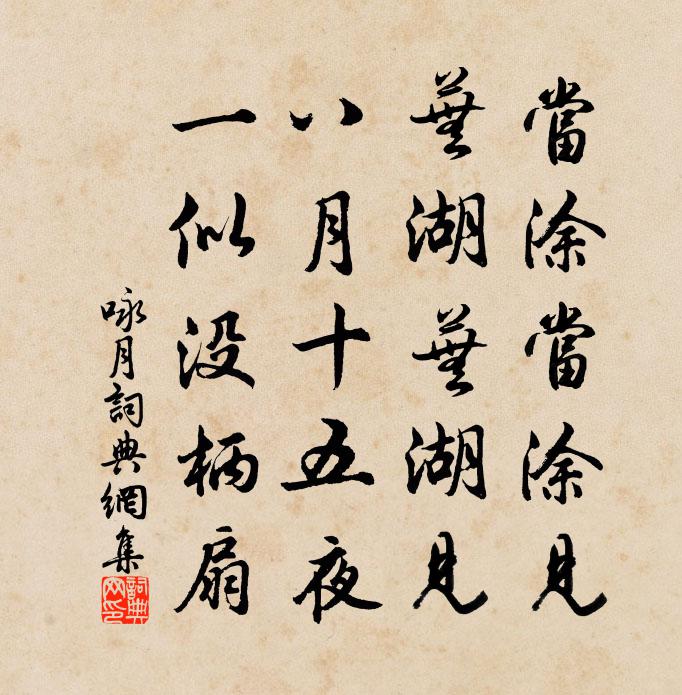 當涂當涂見
蕪湖蕪湖見
八月十五夜
一似没柄扇
咏月詞典網集
詞典网印